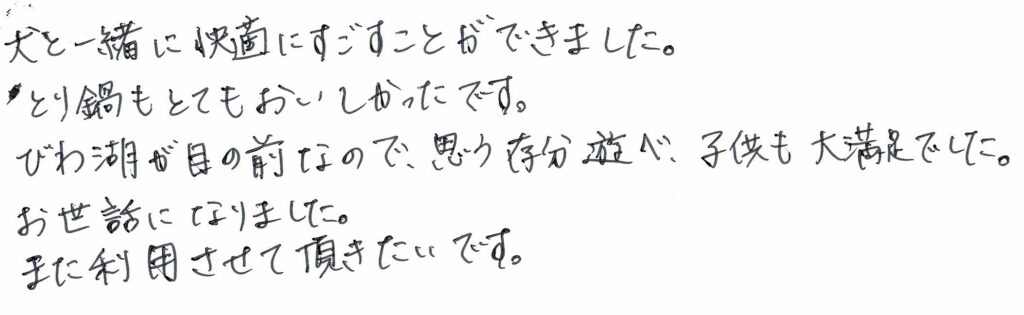 犬と一緒に快適にすごすことができました。
とり鍋もとてもおいしかったです。
びわ湖が目の前なので、思う存分遊べ、子供も大満足でした。
お世話になりました。
また利用させて頂きたいです。